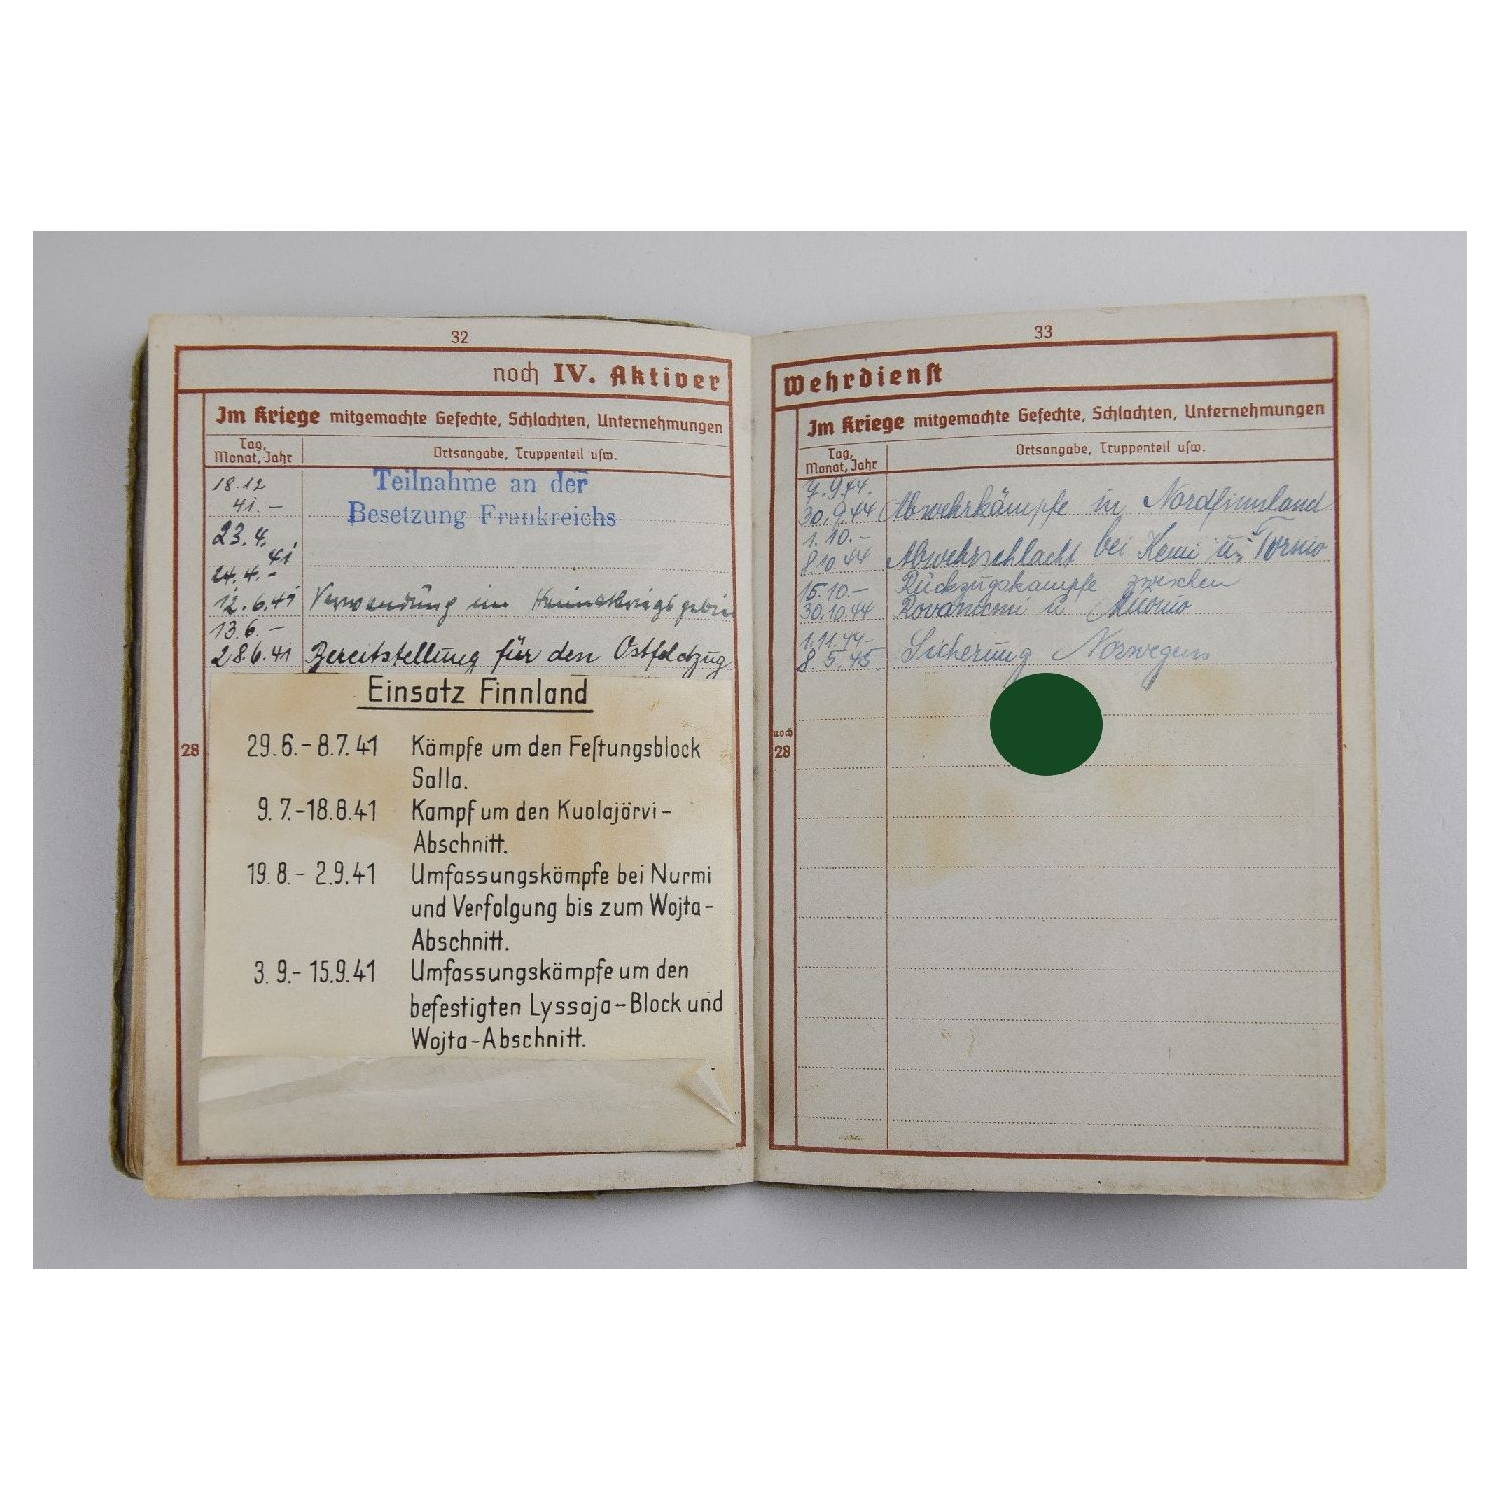 32
noch IV. Aktiver
Im Kriege mitgemachte Gefechte, Schlachten, Unternehmungen
Tag, Monat, Jahr
Ortsangabe, Truppenteil usw.
18.12
41. -
Teilnahme an der
Besetzung Frankreichs
23.4.
41
24.4.-
12.6.41 Verwendung im Heimatkriegsgebiet
13.6. -
28.6.41 Bereitstellung für den Ostfeldzug
Einsatz Finnland
29.6.-8.7.41 Kämpfe um den Festungsblock
Salla.
9.7.-18.8.41 Kampf um den Kuolajärvi-
Abschnitt.
28
19.8.- 2.9.41 Umfassungskämpfe bei Nurmi
und Verfolgung bis zum Wojta-
Abschnitt.
3.9.- 15.9.41 Umfassungskämpfe um den
befestigten Lyssaja-Block und
Wojta-Abschnitt.
33
Wehrdienst
Im Kriege mitgemachte Gefechte, Schlachten, Unternehmungen
Tag, Monat, Jahr
Ortsangabe, Truppenteil usw.
7.9.44.
30.9.44 Abwehrkämpfe in Nordfinnland
1.10.-
8.10.44 Abwehrschlacht bei Kemi u. Tornio
15.10.- Rückzugskämpfe zwischen
30.10.44 Rovaniemi u. Muonio
1.11.44-
8.5.45 Sicherung Norwegens
noch
28